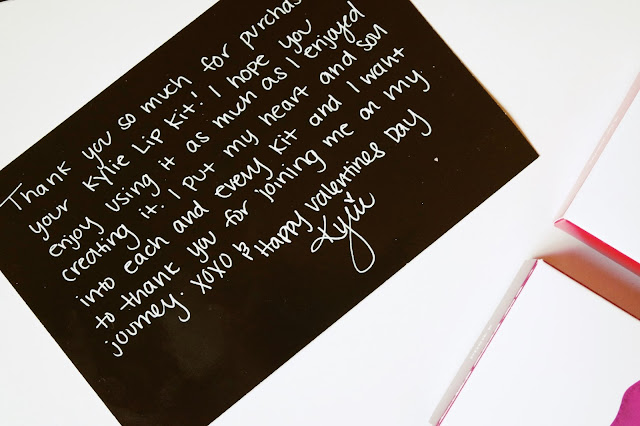 Thank you so much for purchas
your Kylie Lip Kit! I hope you
enjoy using it as much as I enjoyed
creating it. I put my heart and soul
into each and every kit and I want
to thank you for joining me on my
journey. XOXO & Happy Valentines Day
Kylie